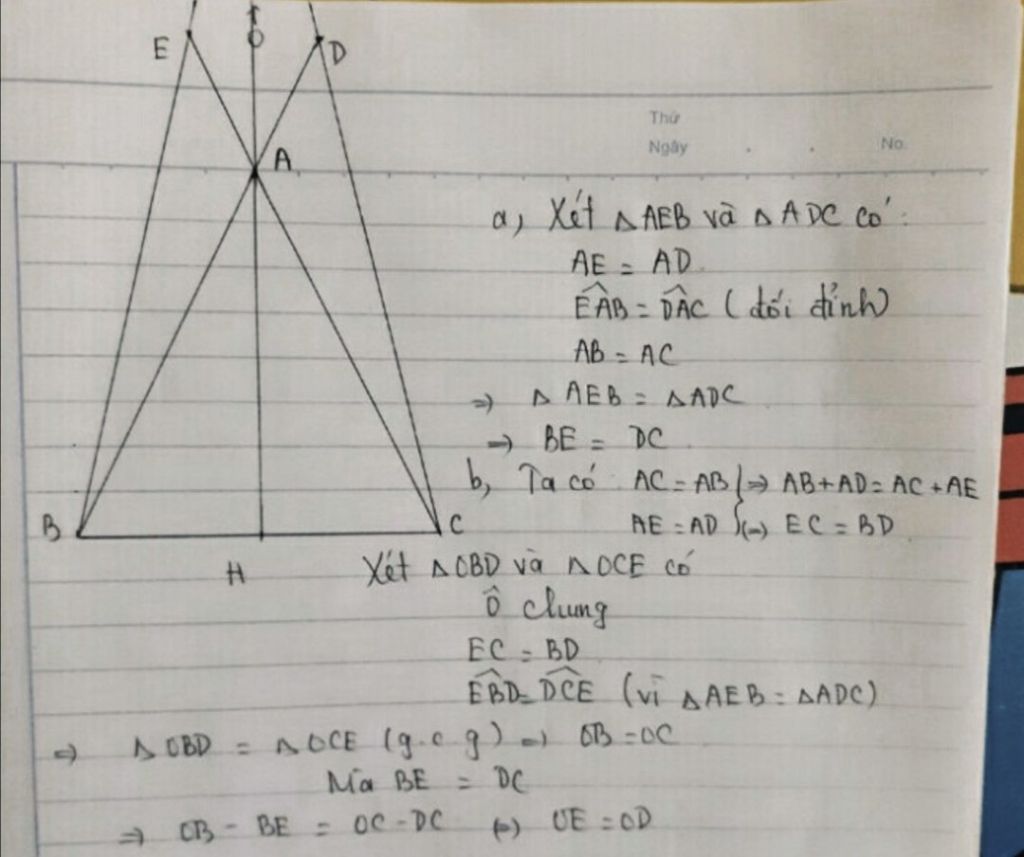 E
D
A
B
C
H
Thứ
Ngày
No.
a, Xét △AEB và △ADC có:
AE = AD
EÂB = DÂC (đối đỉnh)
AB = AC
⇒ △AEB = △ADC
⇒ BE = DC
b, Ta có AC = AB } ⇒ AB + AD = AC + AE
AE = AD } (⇒) EC = BD
Xét △OBD và △OCE có
Ô chung
EC = BD
EB̂D = DĈE (vì △AEB = △ADC)
⇒ △OBD = △OCE (g.c.g) ⇒ OB = OC
Mà BE = DC
⇒ OB - BE = OC - DC (⇒) OE = OD